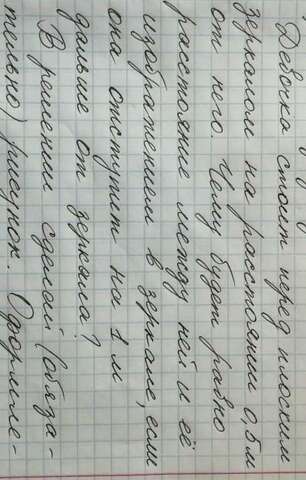 Девочка стоит перед плоским
зеркалом на расстоянии 0,5 м
от него. Чему будет равно
расстояние между ней и её
изображением в зеркале, если
она отступит на 1 м
дальше от зеркала?
В решении сделай (обяза-
тельно) рисунок. Оформле-